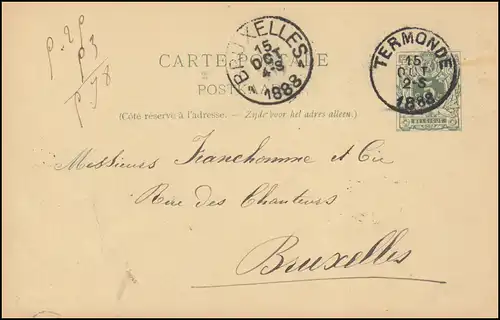 p. 28
p 3
p 78
CARTE POSTALE
POSTKAART
(Côté réservé à l'adresse. — Zijde voor het adres alleen.)
BRUXELLES
15
OCT
4-S
1888
TERMONDE
15
OCT
2-S
1888
Messieurs Franchomme et Cie
Rue des Chanteurs
Bruxelles